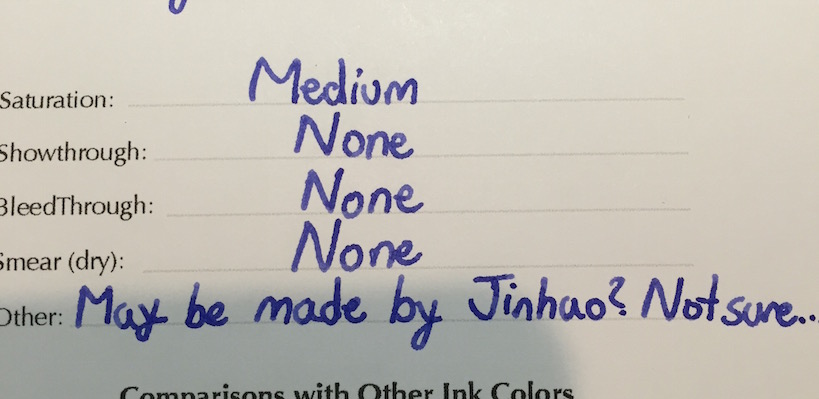 Saturation: Medium
Showthrough: None
BleedThrough: None
Smear (dry): None
Other: May be made by Jinhao? Not sure..
Comparisons with Other Ink Colors